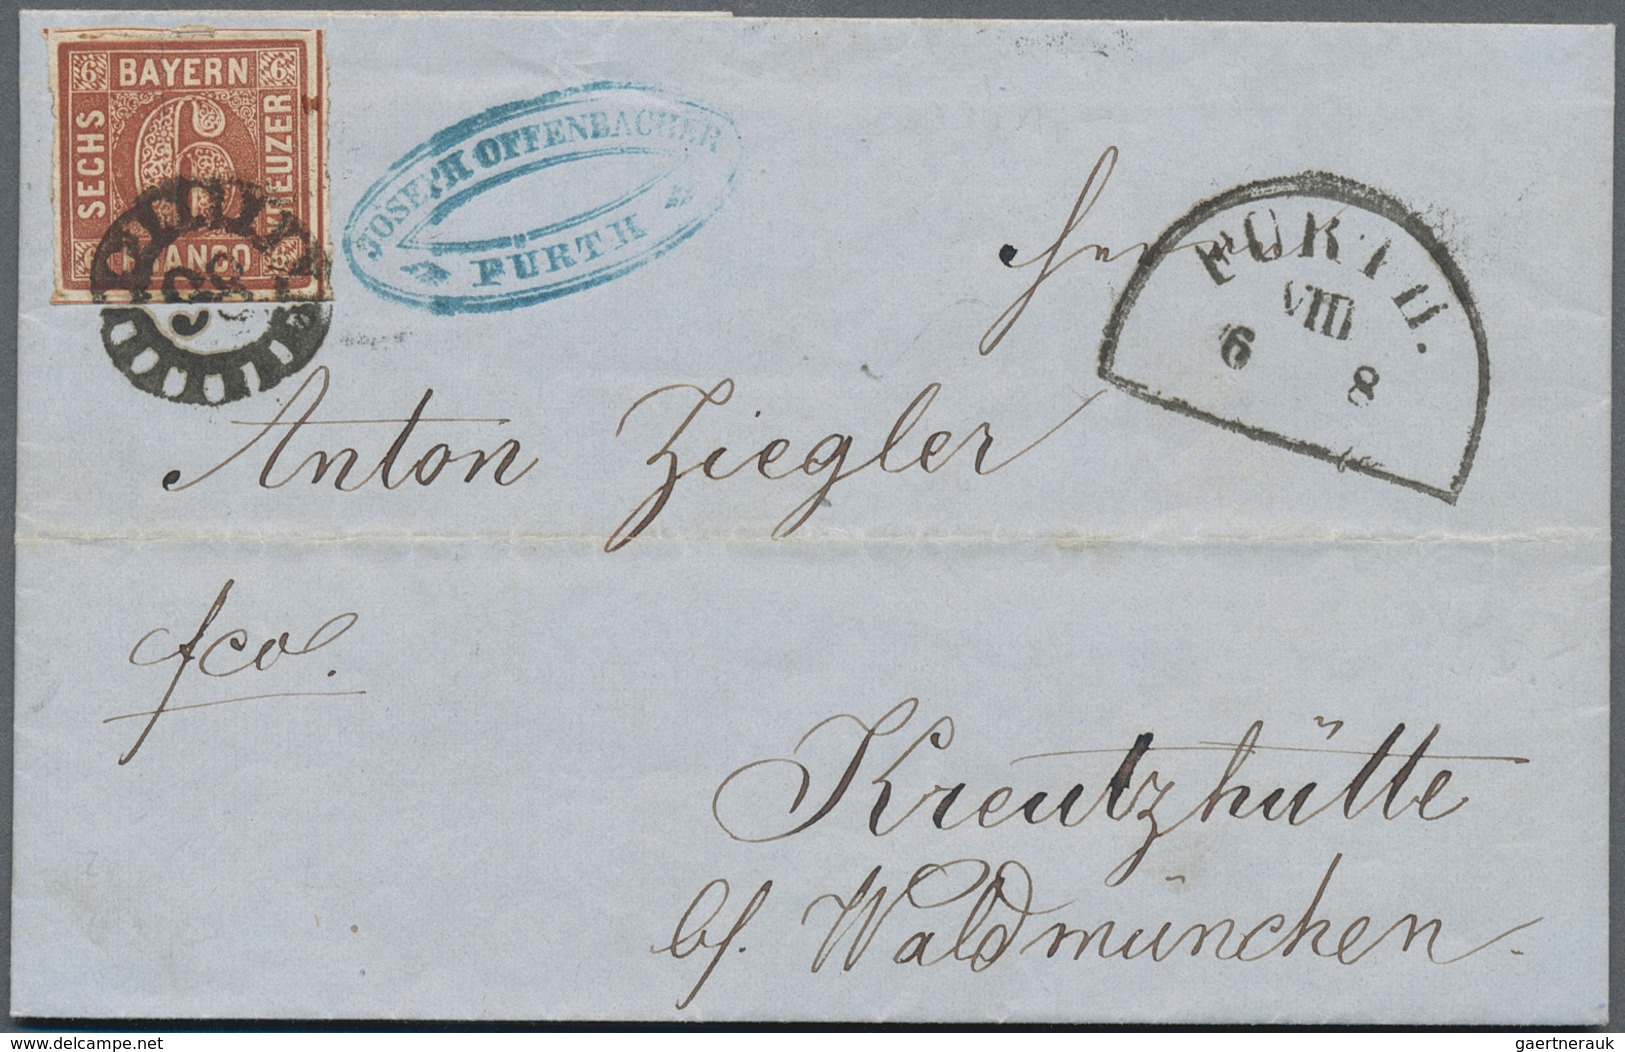 6 BAYERN 6
SECHS
6
KREUZER
6 FRANCO 6
JOSEPH OFFENBACHER
FÜRTH
FÜRTH.
VIII
6 8
Herrn
Anton Ziegler
fco.
Kreutzhütte
bf. Waldmünchen.
© gaertnerauk
delcampe.net